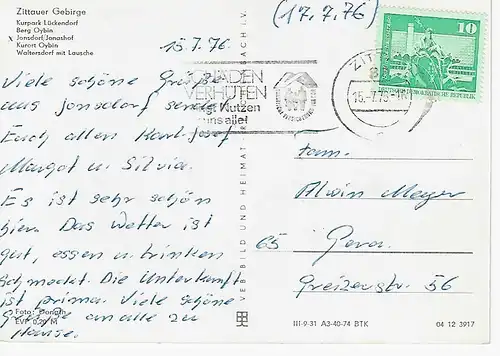 Zittauer Gebirge
Kurpark Lückendorf
Berg Oybin
x Jonsdorf/Jonashof
Kurort Oybin
Waltersdorf mit Lausche
15.7.76
(17.7.76)
10
DEMOKRATISCHE REPUBLIK
ZITT
15.-7.76-18
SCHADEN
VERHÜTEN
Nutzen
uns alle!
Viele schöne Grüße
aus Jonsdorf sendet
Euch allen Karl-Josef
Margot u. Silvia.
Es ist sehr schön
hier. Das Wetter ist
gut, essen u. trinken
schmeckt. Die Unterkunft
ist prima. Viele schöne
Grüße an alle zu
Hause.
Foto: Donath
EVP 0,20 M
VEB BILD UND HEIMAT REICHENBACH I. V.
Fam.
Alwin Meyer
65 Gera
Greizerstr. 56
III-9-31 A3-40-74 BTK
04 12 3917